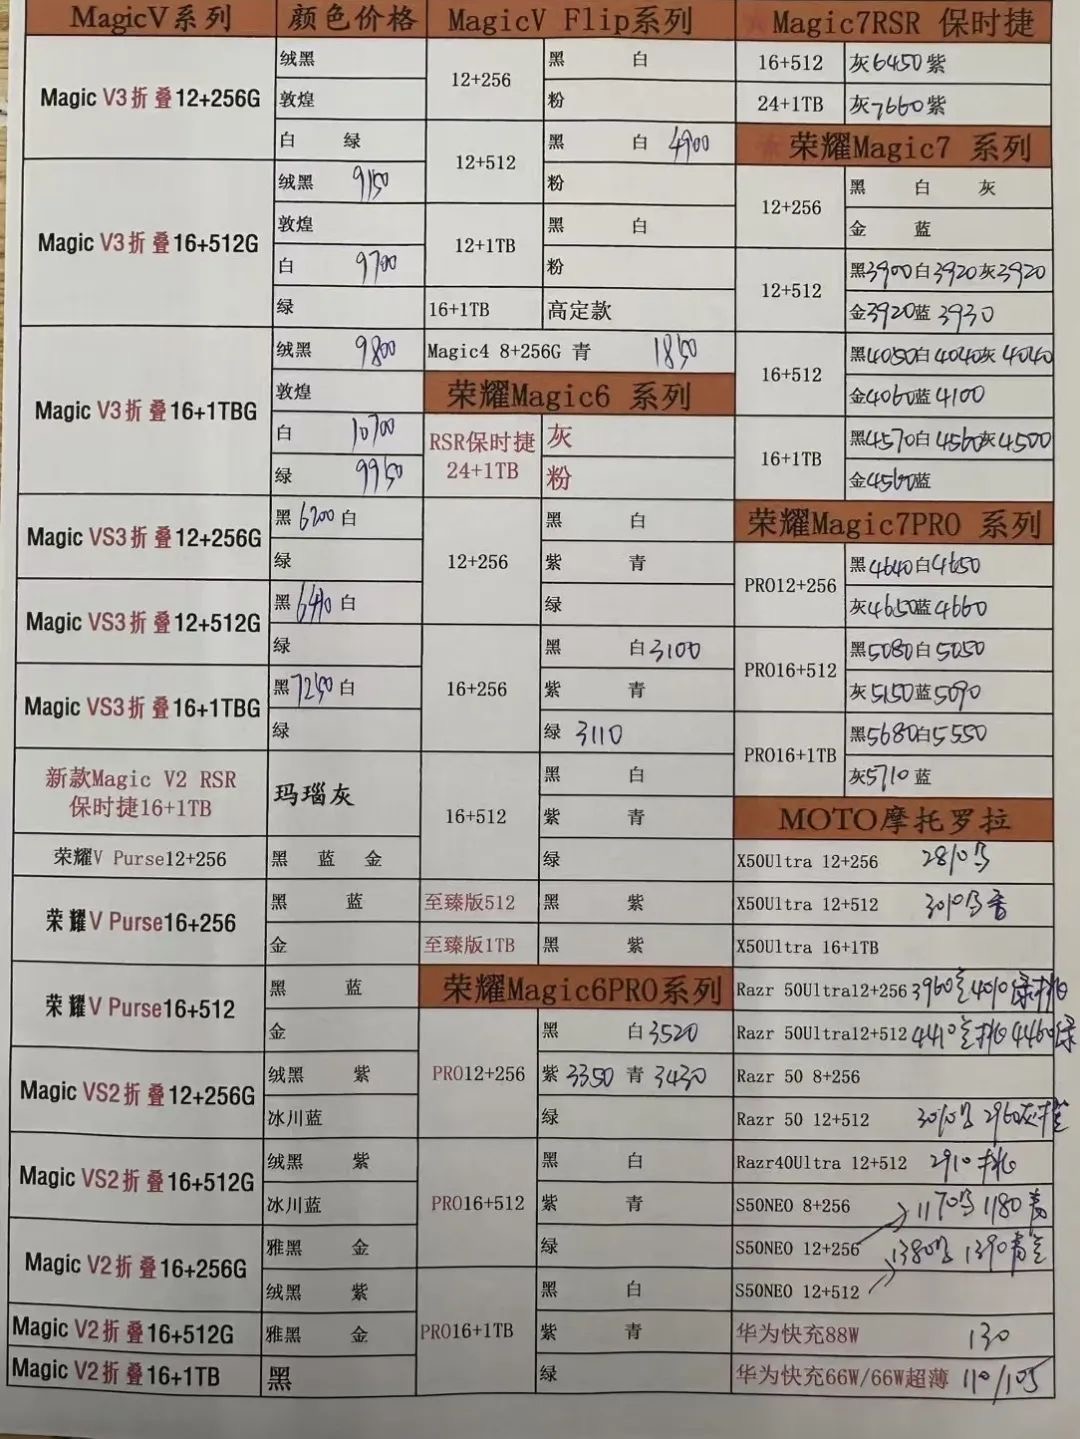 MagicV系列 颜色价格
Magic V3折叠12+256G
绒黑
敦煌
白 绿
Magic V3折叠16+512G
绒黑 9150
敦煌
白 9700
绿
Magic V3折叠16+1TBG
绒黑 9800
敦煌
白 10700
绿 9950
Magic VS3折叠12+256G
黑6200白
绿
Magic VS3折叠12+512G
黑 白
绿
Magic VS3折叠16+1TBG
黑7250白
绿
新款Magic V2 RSR
保时捷16+1TB
玛瑙灰
荣耀V Purse12+256 黑 蓝 金
荣耀V Purse16+256
黑 蓝
金
荣耀V Purse16+512
黑 蓝
金
Magic VS2折叠12+256G
绒黑 紫
冰川蓝
Magic VS2折叠16+512G
绒黑 紫
冰川蓝
Magic V2折叠16+256G
雅黑 金
绒黑 紫
Magic V2折叠16+512G 雅黑 金
Magic V2折叠16+1TB 黑
MagicV Flip系列
12+256
黑 白
粉
12+512
黑 白 4900
粉
12+1TB
黑 白
粉
16+1TB 高定款
Magic4 8+256G 青 1850
荣耀Magic6 系列
RSR保时捷
24+1TB
灰
粉
12+256
黑 白
紫 青
绿
16+256
黑 白3100
紫 青
绿 3110
16+512
黑 白
紫 青
绿
至臻版512 黑 紫
至臻版1TB 黑 紫
荣耀Magic6PRO系列
PRO12+256
黑 白3520
紫 3350 青 3430
绿
PRO16+512
黑 白
紫 青
绿
PRO16+1TB
黑 白
紫 青
绿
Magic7RSR 保时捷
16+512 灰6450紫
24+1TB 灰7660紫
荣耀Magic7 系列
12+256
黑 白 灰
金 蓝
12+512
黑3900白3920灰3920
金3920蓝 3930
16+512
黑4050白4040灰4040
金4060蓝4100
16+1TB
黑4570白4560灰4500
金4560蓝
荣耀Magic7PRO 系列
PRO12+256
黑4640白4650
灰4650蓝4660
PRO16+512
黑5080白5050
灰5150蓝5090
PRO16+1TB
黑5680白5550
灰5710蓝
MOTO摩托罗拉
X50Ultra 12+256 2810
X50Ultra 12+512 3010
X50Ultra 16+1TB
Razr 50Ultra12+256 3960 4010绿
Razr 50Ultra12+512 4410 4460绿
Razr 50 8+256
Razr 50 12+512 3010 2960灰
Razr40Ultra 12+512 2910
S50NEO 8+256 1170 1180
S50NEO 12+256 1380 1390
S50NEO 12+512
华为快充88W 130
华为快充66W/66W超薄 110/105